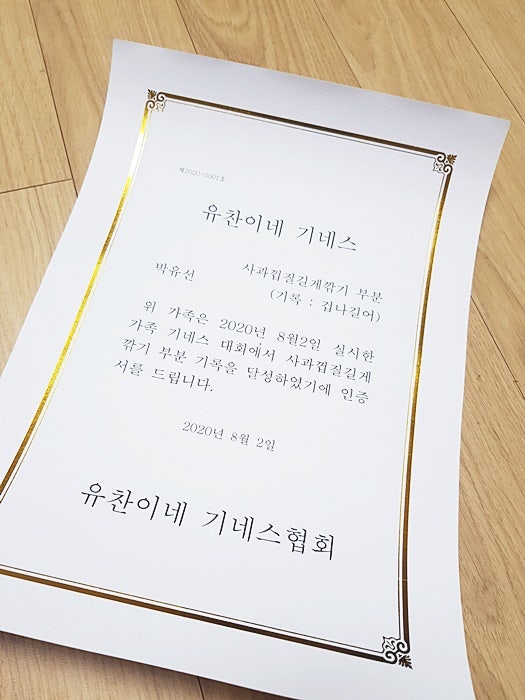 제2020-0001호
유찬이네 기네스
박유선 사과껍질길게깎기 부분
(기록 : 겁나길어)
위 가족은 2020년 8월2일 실시한
가족 기네스 대회에서 사과껍질길게
깎기 부분 기록을 달성하였기에 인증
서를 드립니다.
2020년 8월 2일
유찬이네 기네스협회